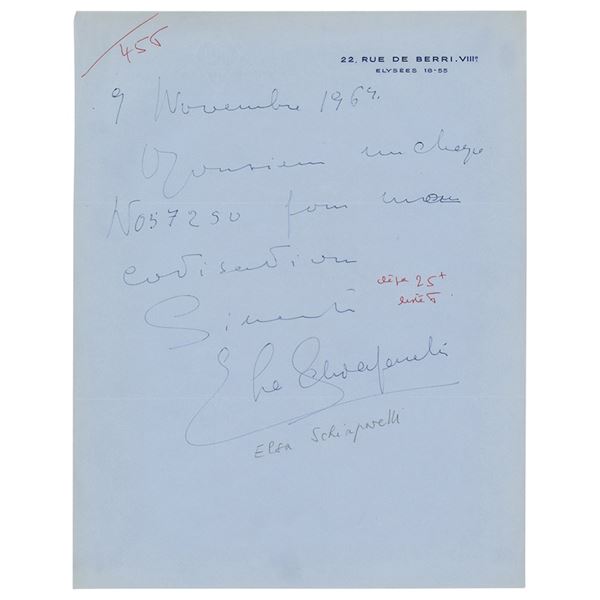 455
22, RUE DE BERRI. VIIIᵉ
ELYSÉES 18-55
9 Novembre 1964.
Monsieur un cheque
No 57290 pour
cotisation
déjà 25+
Elsa Schiaparelli
Elsa Schiaparelli